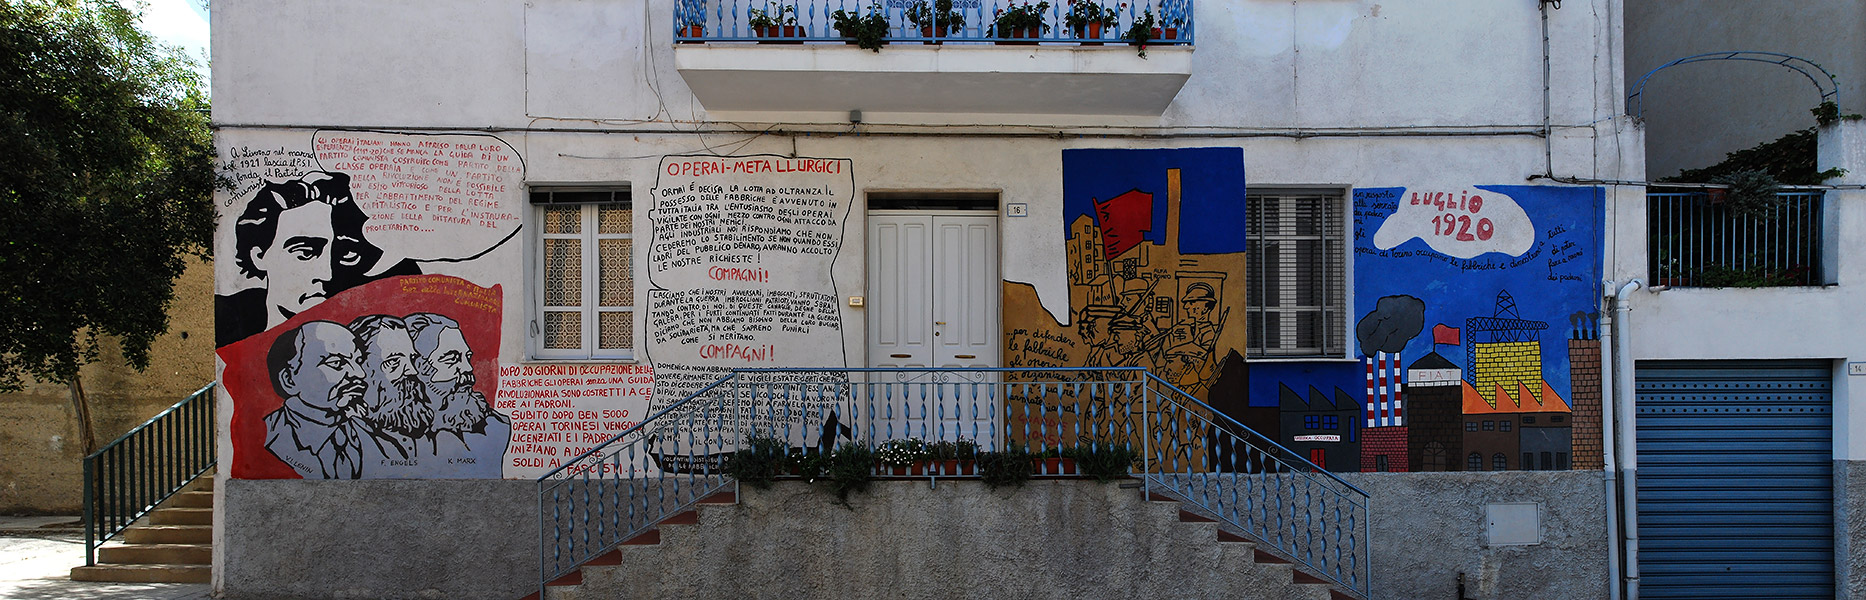 A Livorno nel marzo
del 1921 lascia il P.S.I
e fonda il Partito
Comunista
GLI OPERAI ITALIANI HANNO APPRESO DALLA LORO
ESPERIENZA (1919-20) CHE SE MANCA LA GUIDA DI UN
PARTITO COMUNISTA COSTRUITO COME PARTITO DELLA
CLASSE OPERAIA E COME UN PARTITO
DELLA RIVOLUZIONE NON È POSSIBILE
UN ESITO VITTORIOSO DELLA LOTTA
PER L'ABBATTIMENTO DEL REGIME
CAPITALISTICO E PER L'INSTAURA-
ZIONE DELLA DITTATURA DEL
PROLETARIATO....
PARTITO COMUNISTA D'ITALIA
Sez. della Internazionale
Comunista
V. LENIN
F. ENGELS
K. MARX
DOPO 20 GIORNI DI OCCUPAZIONE DELLE
FABBRICHE GLI OPERAI senza UNA GUIDA
RIVOLUZIONARIA SONO COSTRETTI A CE
DERE AI PADRONI.
SUBITO DOPO BEN 5000
OPERAI TORINESI VENGONO
LICENZIATI E I PADRONI
INIZIANO A DARE
SOLDI AI FASCISTI....
OPERAI-METALLLURGICI
ORMAI É DECISA LA LOTTA AD OLTRANZA. IL
POSSESO DELLE FABBRICHE È AVVENUTO IN
TUTTA ITALIA TRA L'ENTUSIASMO DEGLI OPERAI
VIGILATE CON OGNI MEZZO CONTRO OGNI ATTACCO DA
PARTE DEI NOSTRI NEMICI
AGLI INDUSTRIALI NOI RISPONDIAMO CHE NON
CEDEREMO LO STABILIMENTO SE NON QUANDO ESSI
LADRI DEL PUBBLICO DENARO AVRANNO ACCOLTO
LE NOSTRE RICHIESTE!
COMPAGNI!
LASCIAMO CHE I NOSTRI AVVERSARI, IMBOSCATI, SFRUTTATORI
DURANTE LA GUERRA IMBROGLIONI PATRIOTI VANNO SBRAI
TANDO CONTRO DI NOI, QUESTE CANAGLIE DEGNE DELLA
GALERA PER I FURTI CONTINUATI FATTI DURANTE LA GUERRA
DICIAMO CHE NON ABBIAMO BISOGNO DELLA LORO BUGIAR
DA SOLIDARIETÀ, MA CHE SAPREMO PUNIRLI
COME SI MERITANO.
COMPAGNI!
DOMENICA NON ABBANDONATE
16
ALFA
ROMEO
...per difendere
le fabbriche
gli operai
si organizzano
LUGLIO
1920
in risposta
alla serrata
dei padroni
gli
operai di Torino occupano le fabbriche e dimostrano a tutti
di poter
fare a meno
dei padroni
FIAT
FABBRICA OCCUPATA
14